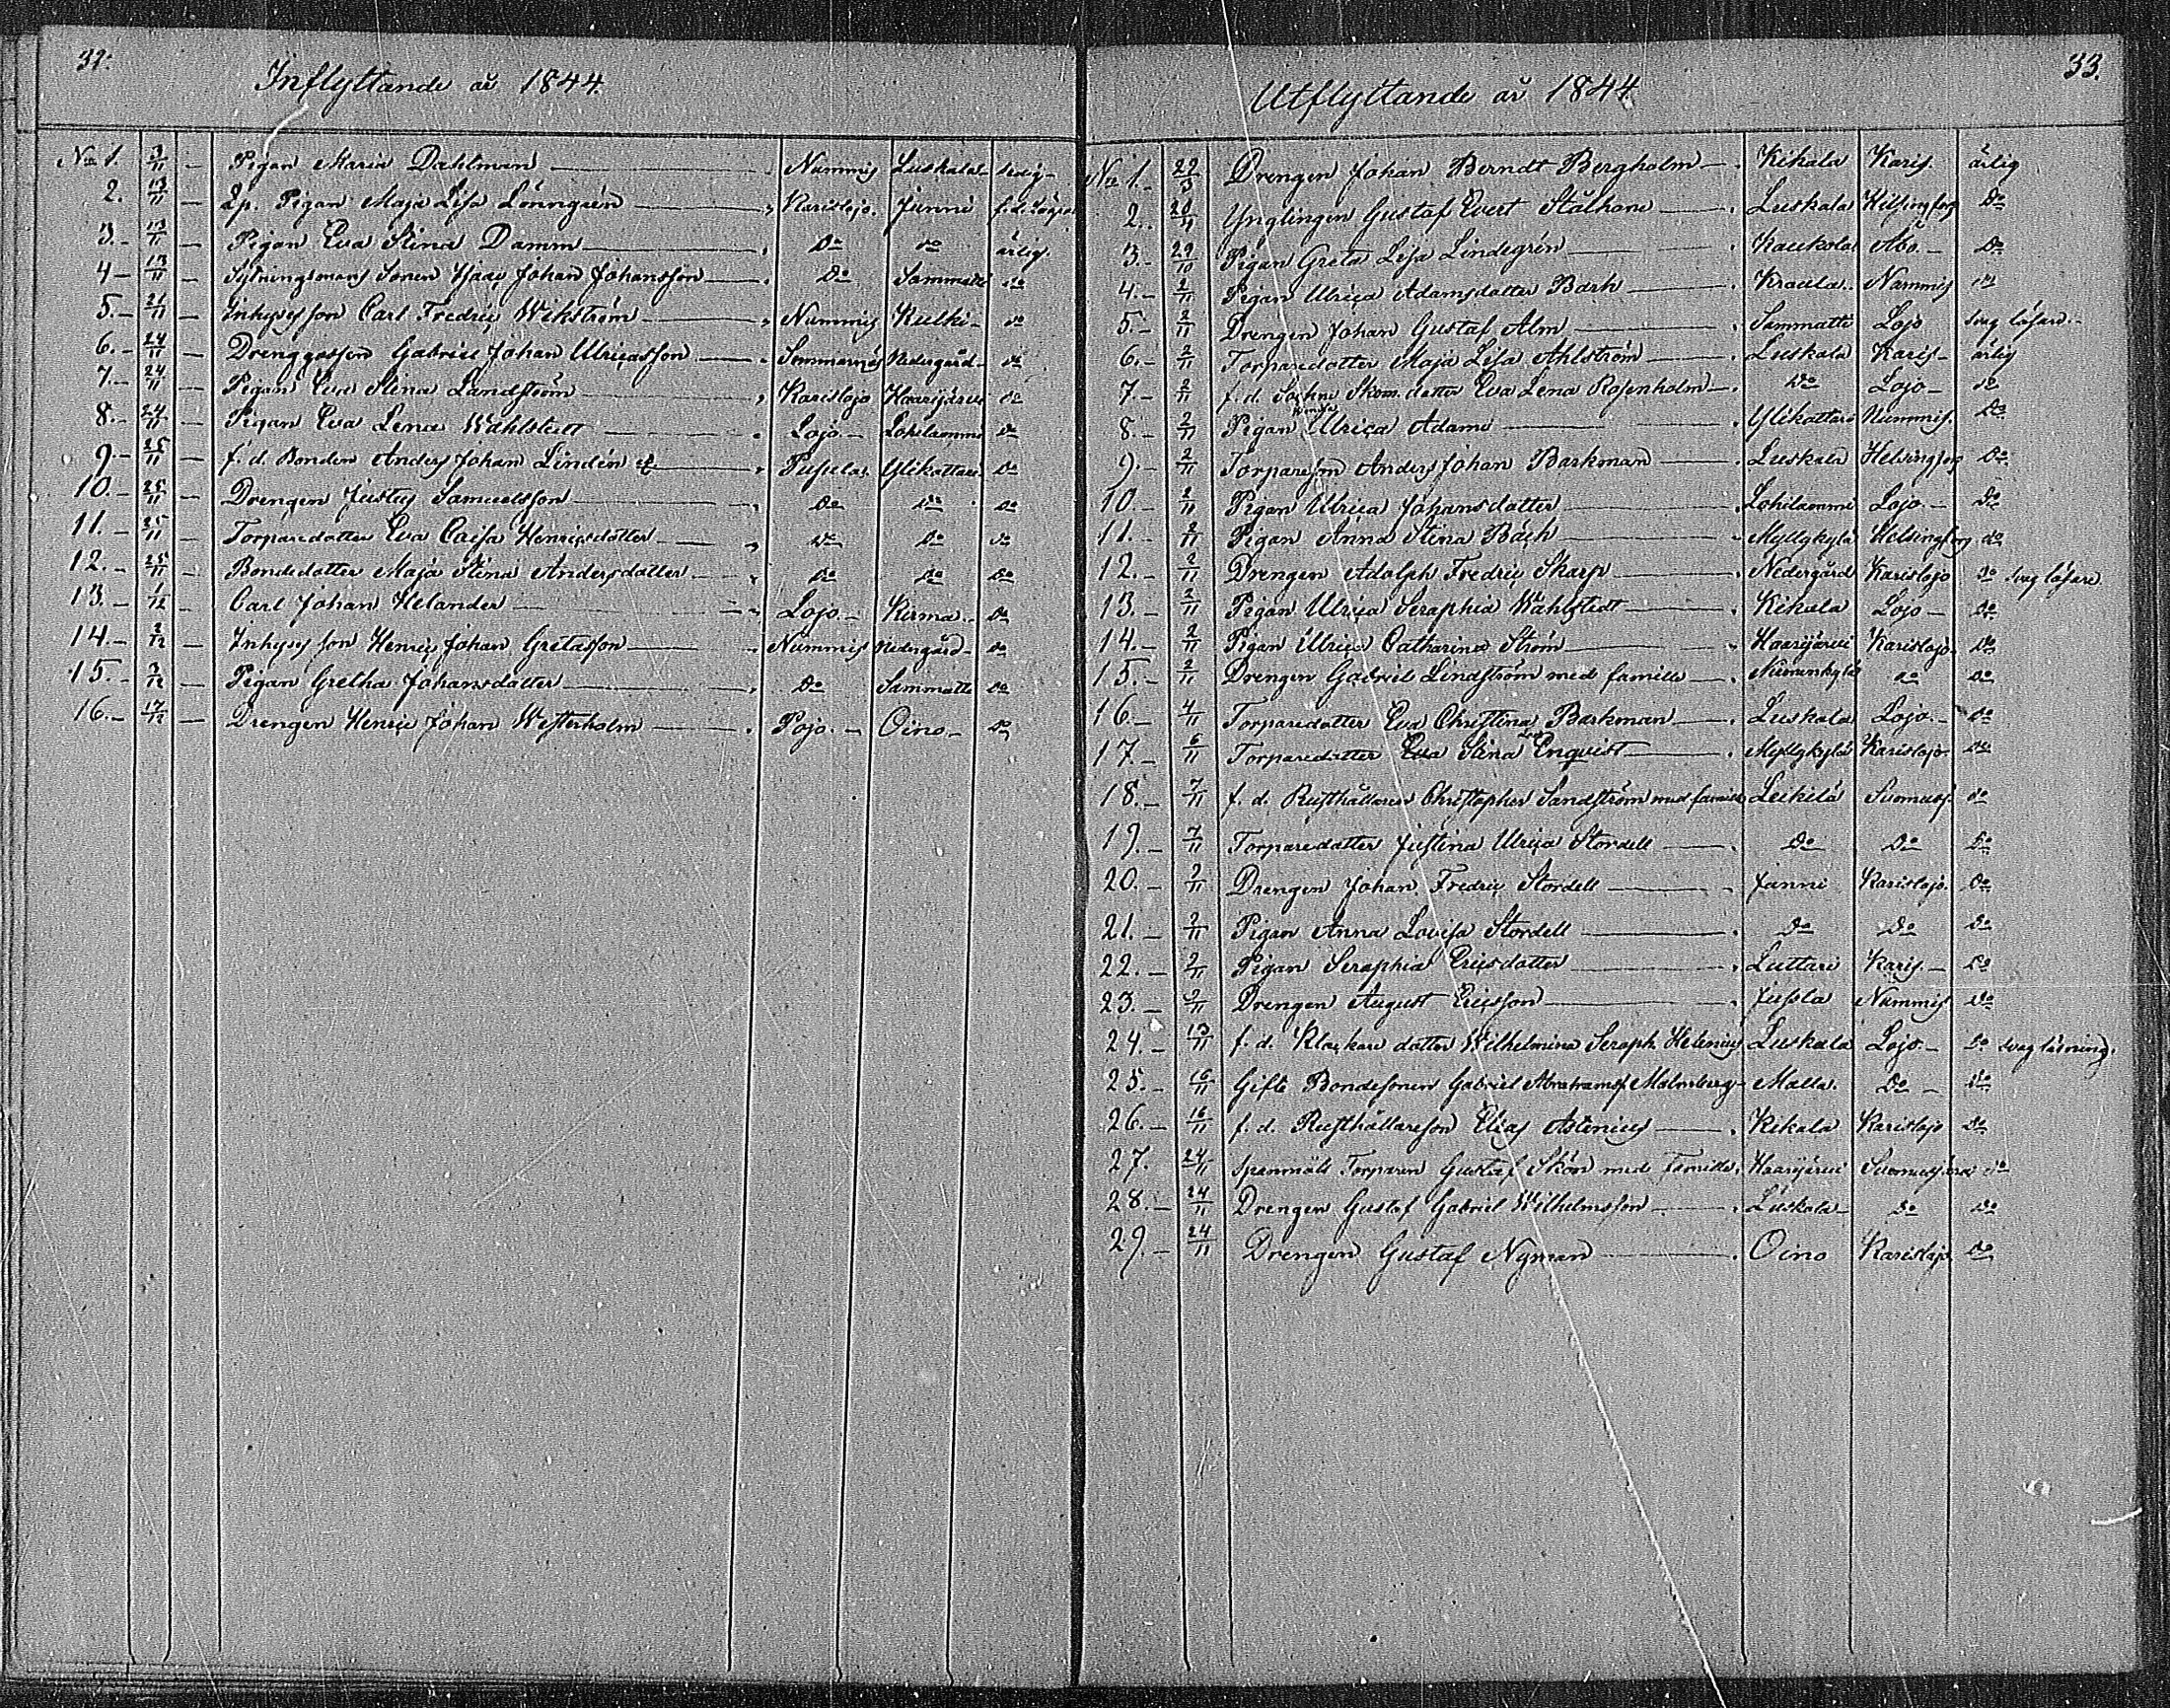 32.
Inflyttande år 1844.
No 1. 3/11 — Pigan Maria Dahlman — Nummis Luskala
2. 13/11 — Lp. Pigan Maja Lisa Lönngrén — Karislojo. Junni
3. 13/11 — Pigan Eva Stina Damm — Do do ärlig.
4 13/11 — Sytningsmans Sonen Isaac Johan Johansson — Do Sammatti do
5. 21/11 — Inhyses son Carl Fredric Wikström — Nummis Kulki do
6. 24/11 — Drenggosson Gabriel Johan Ulricasson — Nedergård do
7. 24/11 — Pigan Eva Stina Landström — Karislojo Haarijärvi do
8. 24/11 — Pigan Eva Lena Wahlstedt — Lojo Lohilammi do
9. 25/11 — f. d. Bonden Anders Johan Lindén — Pusula Ylikattari Do
10. 25/11 — Drengen Justus Samuelsson — Do Do Do
11. 25/11 — Torparedotter Eva Caisa Henricsdotter — Do Do do
12. 25/11 — Bondedotter Maja Stina Andersdotter — Do Do Do
13. 1/12 — Carl Johan Helander — Lojo Kirma Do
14. 2/12 — Inhyses son Henric Johan Gretasson — Nummis Nedergård do
15. 3/12 — Pigan Gretha Johansdotter — Do Sammatti Do
16. 17/12 — Drengen Henric Johan Westerholm — Pojo. Oino do
33.
Utflyttande år 1844
No 1. 22/3 Drengen Johan Berndt Bergholm — Kikala Karis. ärlig
2. Ynglingen Gustaf Evert Stålhane — Luskala Helsingfors Do
3. 29/10 Pigan Greta Lisa Lindegrén — Kaukola Åbo. Do
4. 2/11 Pigan Ulrica Adamsdotter Barh — Kraula. Nummis do
5. 2/11 Drengen Johan Gustaf Alm — Sammatti Lojo svag läsare.
6. 2/11 Torparedotter Maja Lisa Ahlström — Luskala Karis ärlig
7. 2/11 f. d. Sockne Skom. dotter Eva Lena Rosenholm — Do Lojo do
8. 2/11 Pigan Ulrica Adams — Ylikattari Nummis. Do
9. 2/11 Torpareson Anders Johan Barkman — Luskala Helsingfors Do
10. 2/11 Pigan Ulrica Johansdotter — Lohilammi Lojo. Do
11. 2/11 Pigan Anna Stina Bäck — Myllykylä Helsingfors do
12. 2/11 Drengen Adolph Fredric Skarp — Nedergård Karislojo do svag läsare
13. 2/11 Pigan Ulrica Seraphia Wahlstedt — Kikala Lojo Do
14. 2/11 Pigan Ulrica Catharina Ström — Haarijärvi Karislojo. Do
15. 2/11 Drengen Gabriel Lindström med familie — do Do
16. 4/11 Torparedotter Eva Christina Barkman — Luskala Lojo. Do
17. 6/11 Torparedotter Eva Stina Enqvist — Myllykylä Karislojo do
18. 7/11 f. d. Rusthållaren Christopher Sandström med familie Leikilä Suomusj. do
19. 7/11 Torparedotter Justina Ulrica Stordell — Do Do Do
20. 2/11 Drengen Johan Fredric Stordell — Junni Karislojo. Do
21. 2/11 Pigan Anna Lovisa Stordell — Do Do Do
22. 2/11 Pigan Seraphia Ericsdotter — Luttari Karis. Do
23. 2/11 Drengen August Ericsson — Jussla Nummis Do
24. 13/11 f. d. Klockare dotter Wilhelmina Seraph. Helenius Luskala Lojo Do svag läsning.
25. 16/11 Gifte Bondesonen Gabriel Abrahamss. Malmberg Malla. Do do
26. 16/11 f. d. Rusthållareson Elias Astenius — Kikala Karislojo Do
27. 24/11 Spanmåls Torparen Gustaf Skön med Familie. Haarijärvi Suomusjärvi do
28. 24/11 Drengen Gustaf Gabriel Wilhelmsson — Luskala Do Do
29. 24/11 Drengen Gustaf Nyman — Oino Karislojo Do